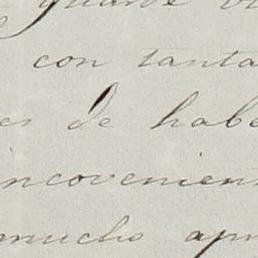 con tanta
es de habe
incovenien
mucho apr